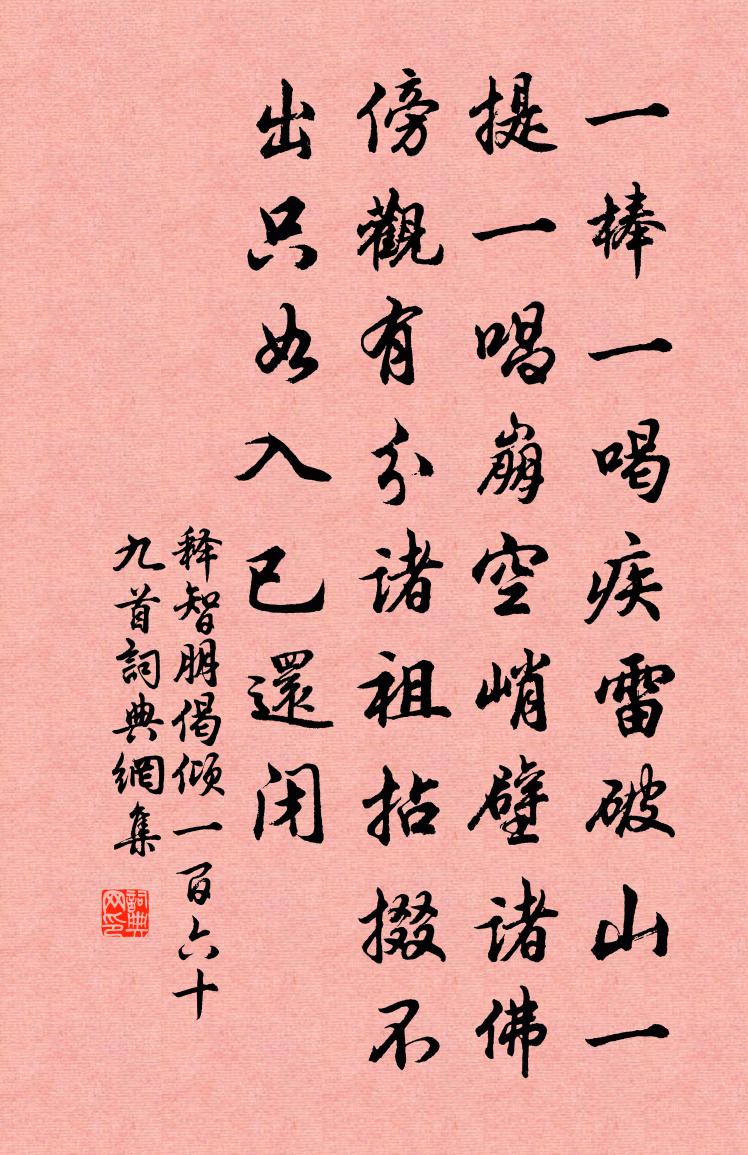 一棒一喝疾雷破山一
提一唱崩空峭壁诸佛
傍觀有分诸祖拈掇不
出只如入已還闭
释智朋偈倾一百六十
九首詞典網集
詞典网印